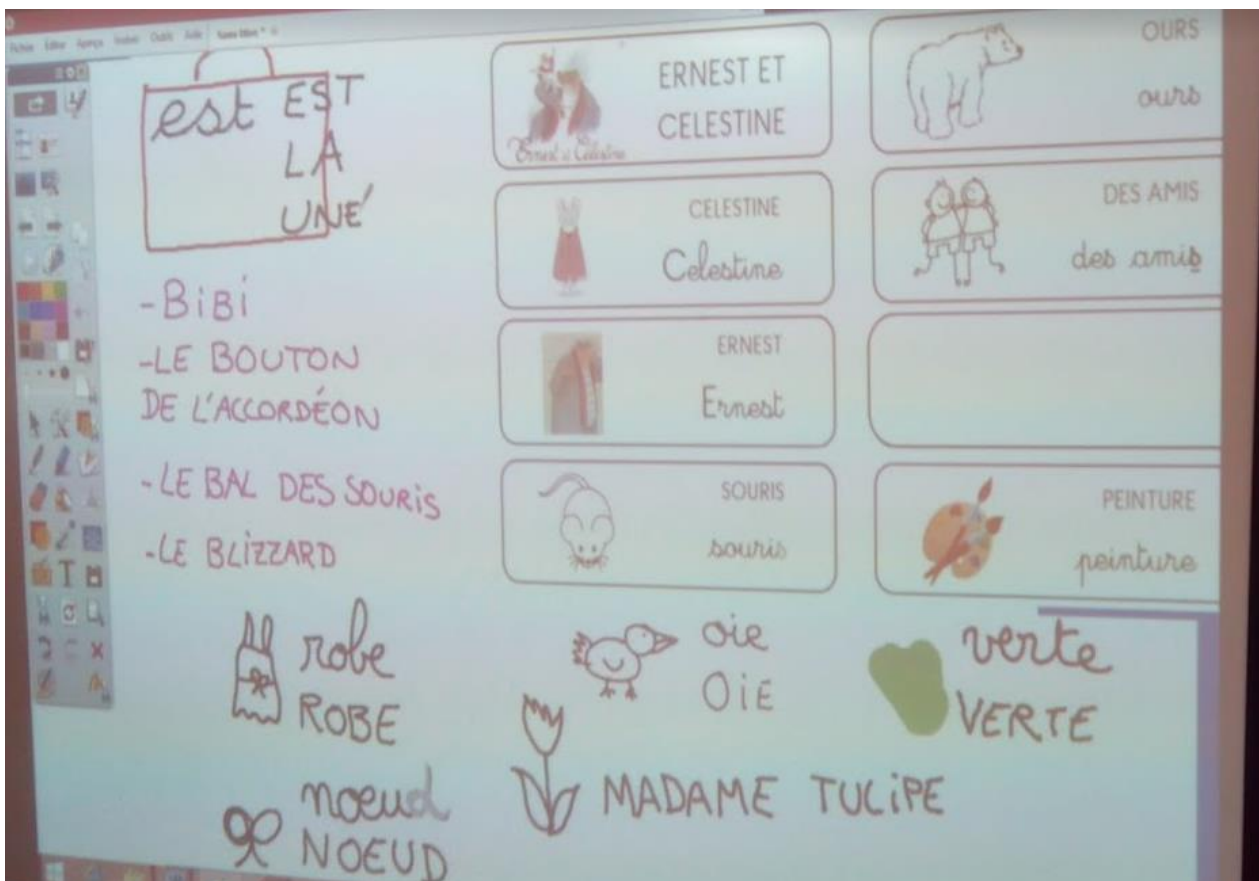 Fichier Editer Aperçu Insérer Outils Aide
est EST
LA
UNE
-BiBi
-LE BOUTON
DE L'ACCORDÉON
-LE BAL DES SOURiS
-LE BLiZZARD
Ernest et Célestine
ERNEST ET
CELESTINE
CELESTINE
Celestine
ERNEST
Ernest
SOURIS
souris
OURS
ours
DES AMIS
des amis
PEINTURE
peinture
robe
ROBE
oie
OiE
verte
VERTE
noeud
NOEUD
MADAME TULiPE